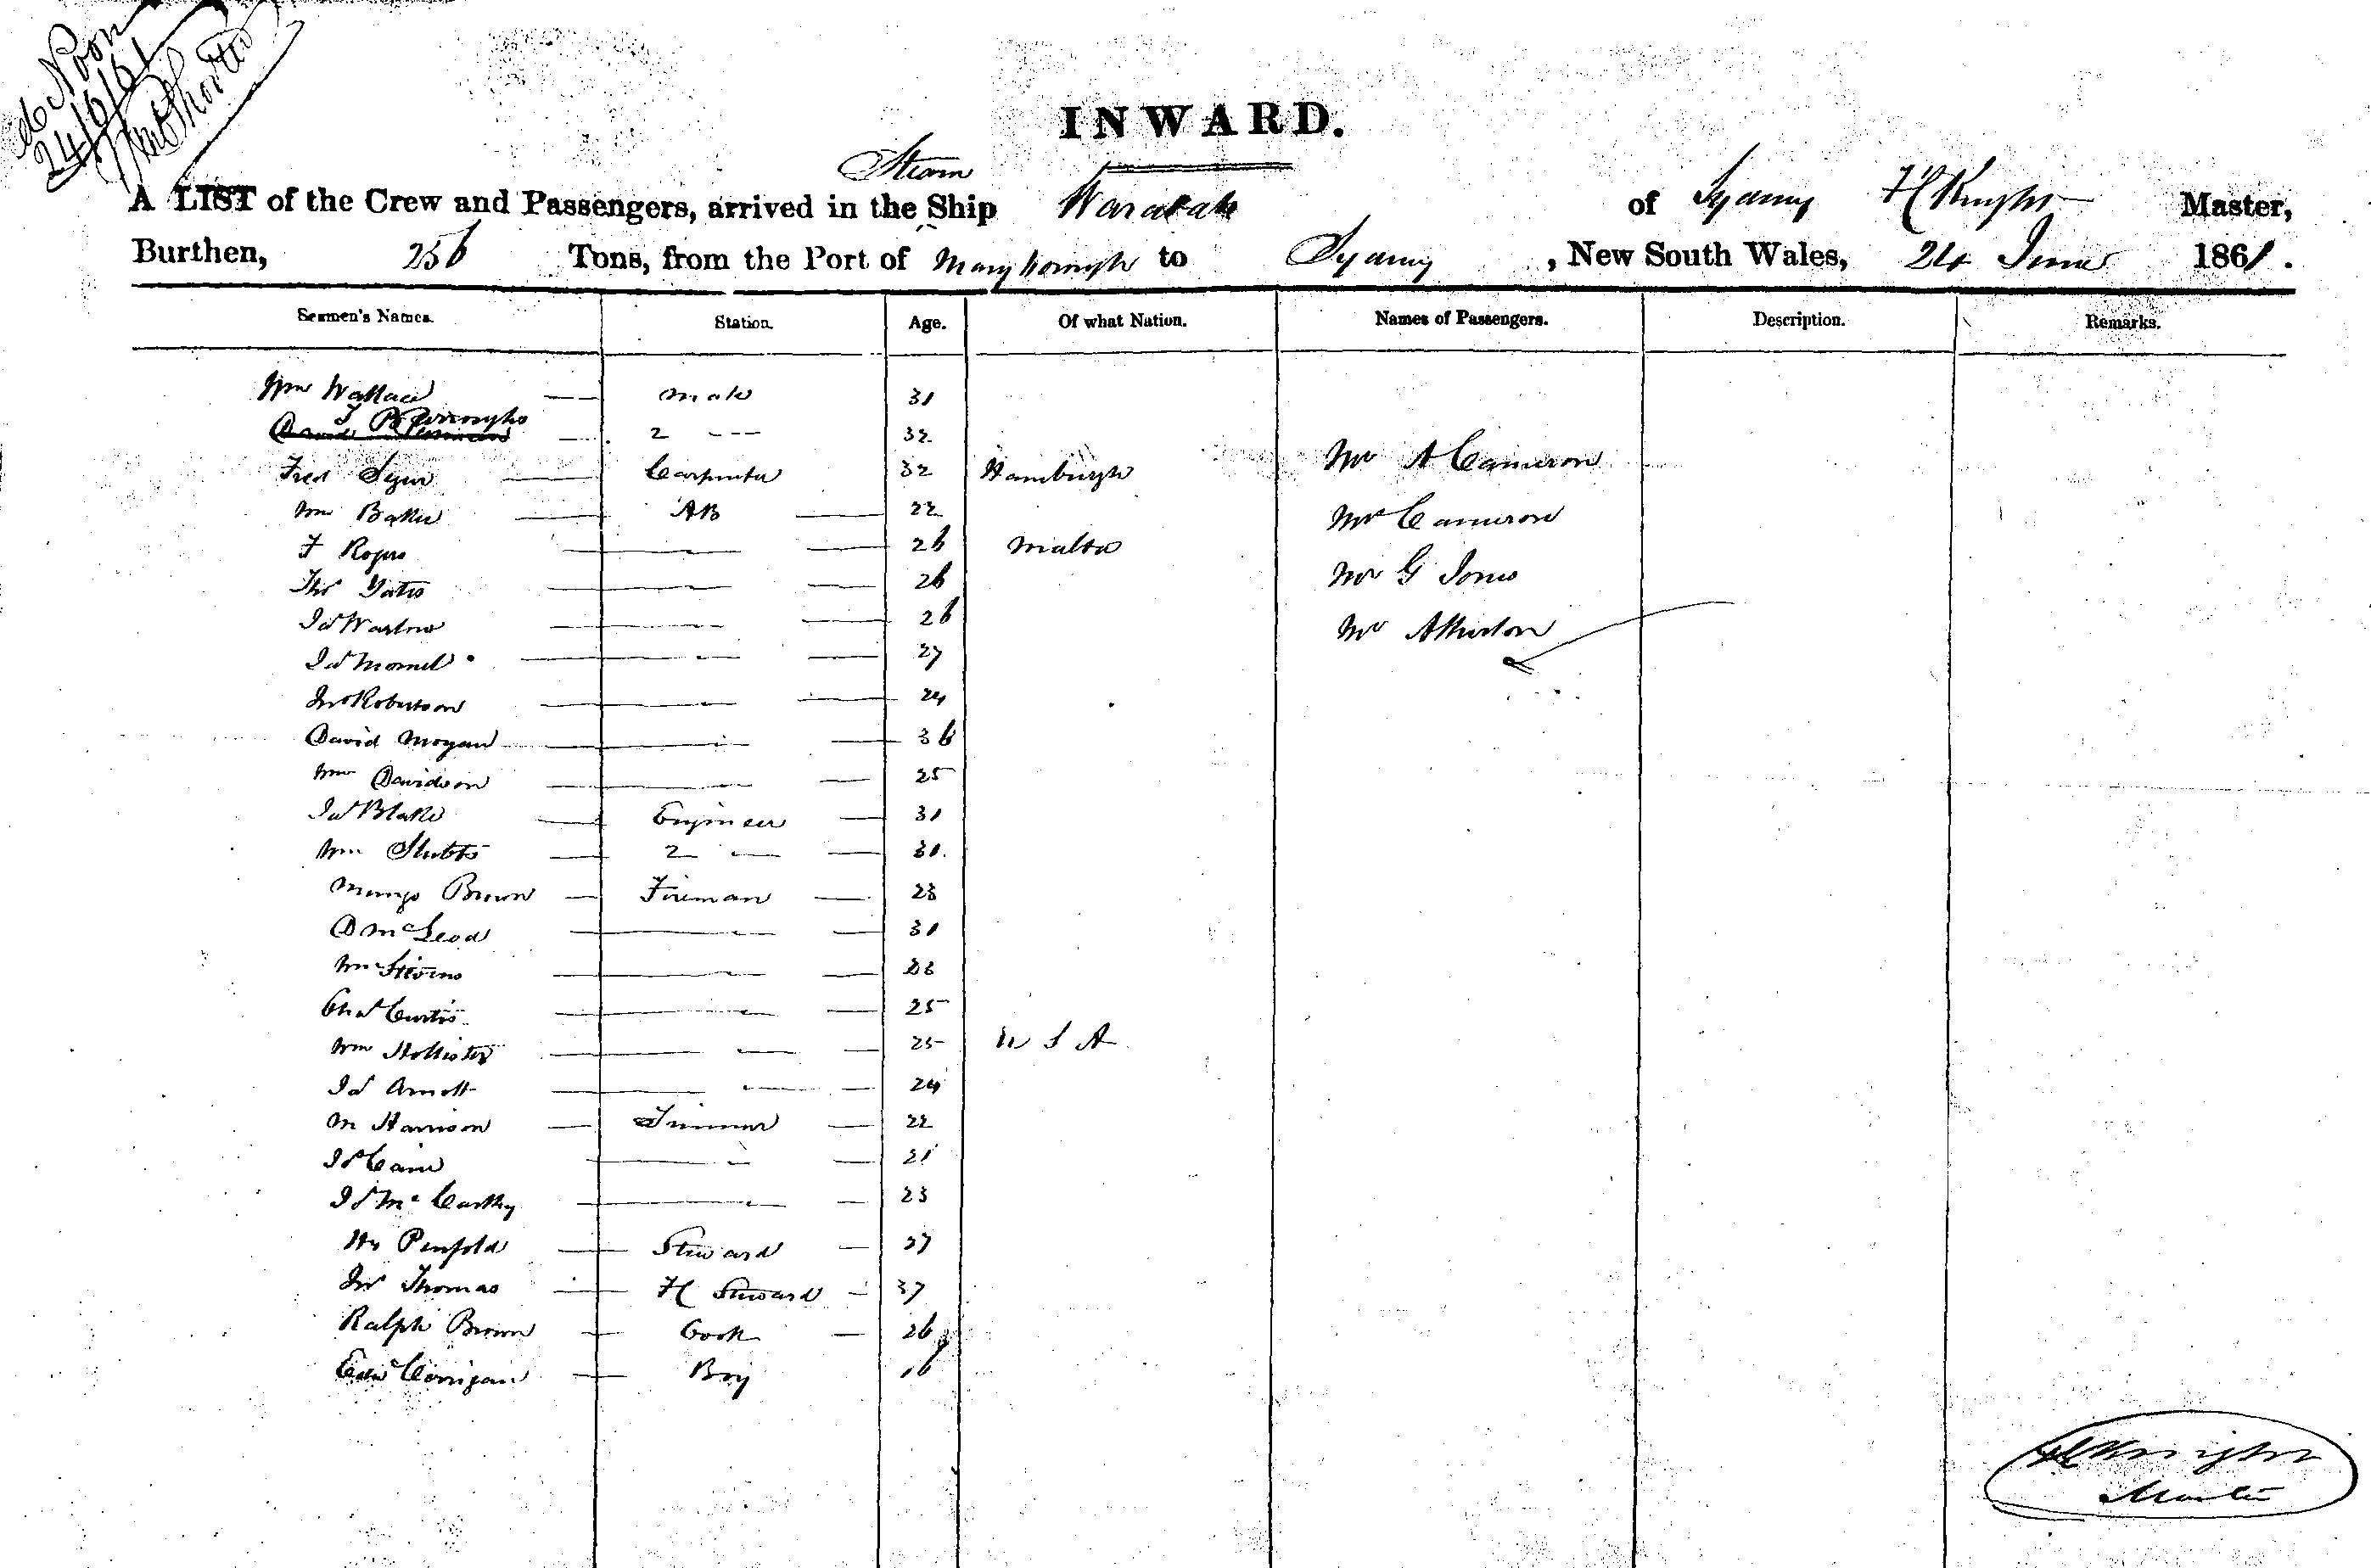 Noon
24/6/61
INWARD.
Steam
A LIST of the Crew and Passengers, arrived in the Ship Waratah of Sydney H Knight Master,
Burthen, 256 Tons, from the Port of Maryborough to Sydney, New South Wales, 24 June 1861.
Seamen's Names. Station. Age. Of what Nation. Names of Passengers. Description. Remarks.
Wm Wallace Mate 31
J Burroughs 2 — 32
Fred Carpenter 32 Hamburgh Mr A Cameron
Wm Baker AB 22 Mrs Cameron
F Rogers — 26 Malta Mr G Jones
Thos Yates — 26
Jas — 26 Mr Atherton
Jas — 27
Jno Robertson — 24
David Mogan — 36
Wm Davidson — 25
Jas Blake Engineer 31
Wm Stubbs 2 — 30
Mungo Brown Fireman 28
D McLeod — 31
Wm Stevens — 28
Chas Curtis — 25
Wm Hollister — 25 U S A
Jas Arnott — 24
M Harrison Trimmer 22
Jas Cain — 21
Jas McCarthy — 23
Hy Penfold Steward 37
Jno Thomas F C Steward 37
Ralph Brown Cook 26
Edwd Corrigan Boy 16
H Knight
Master